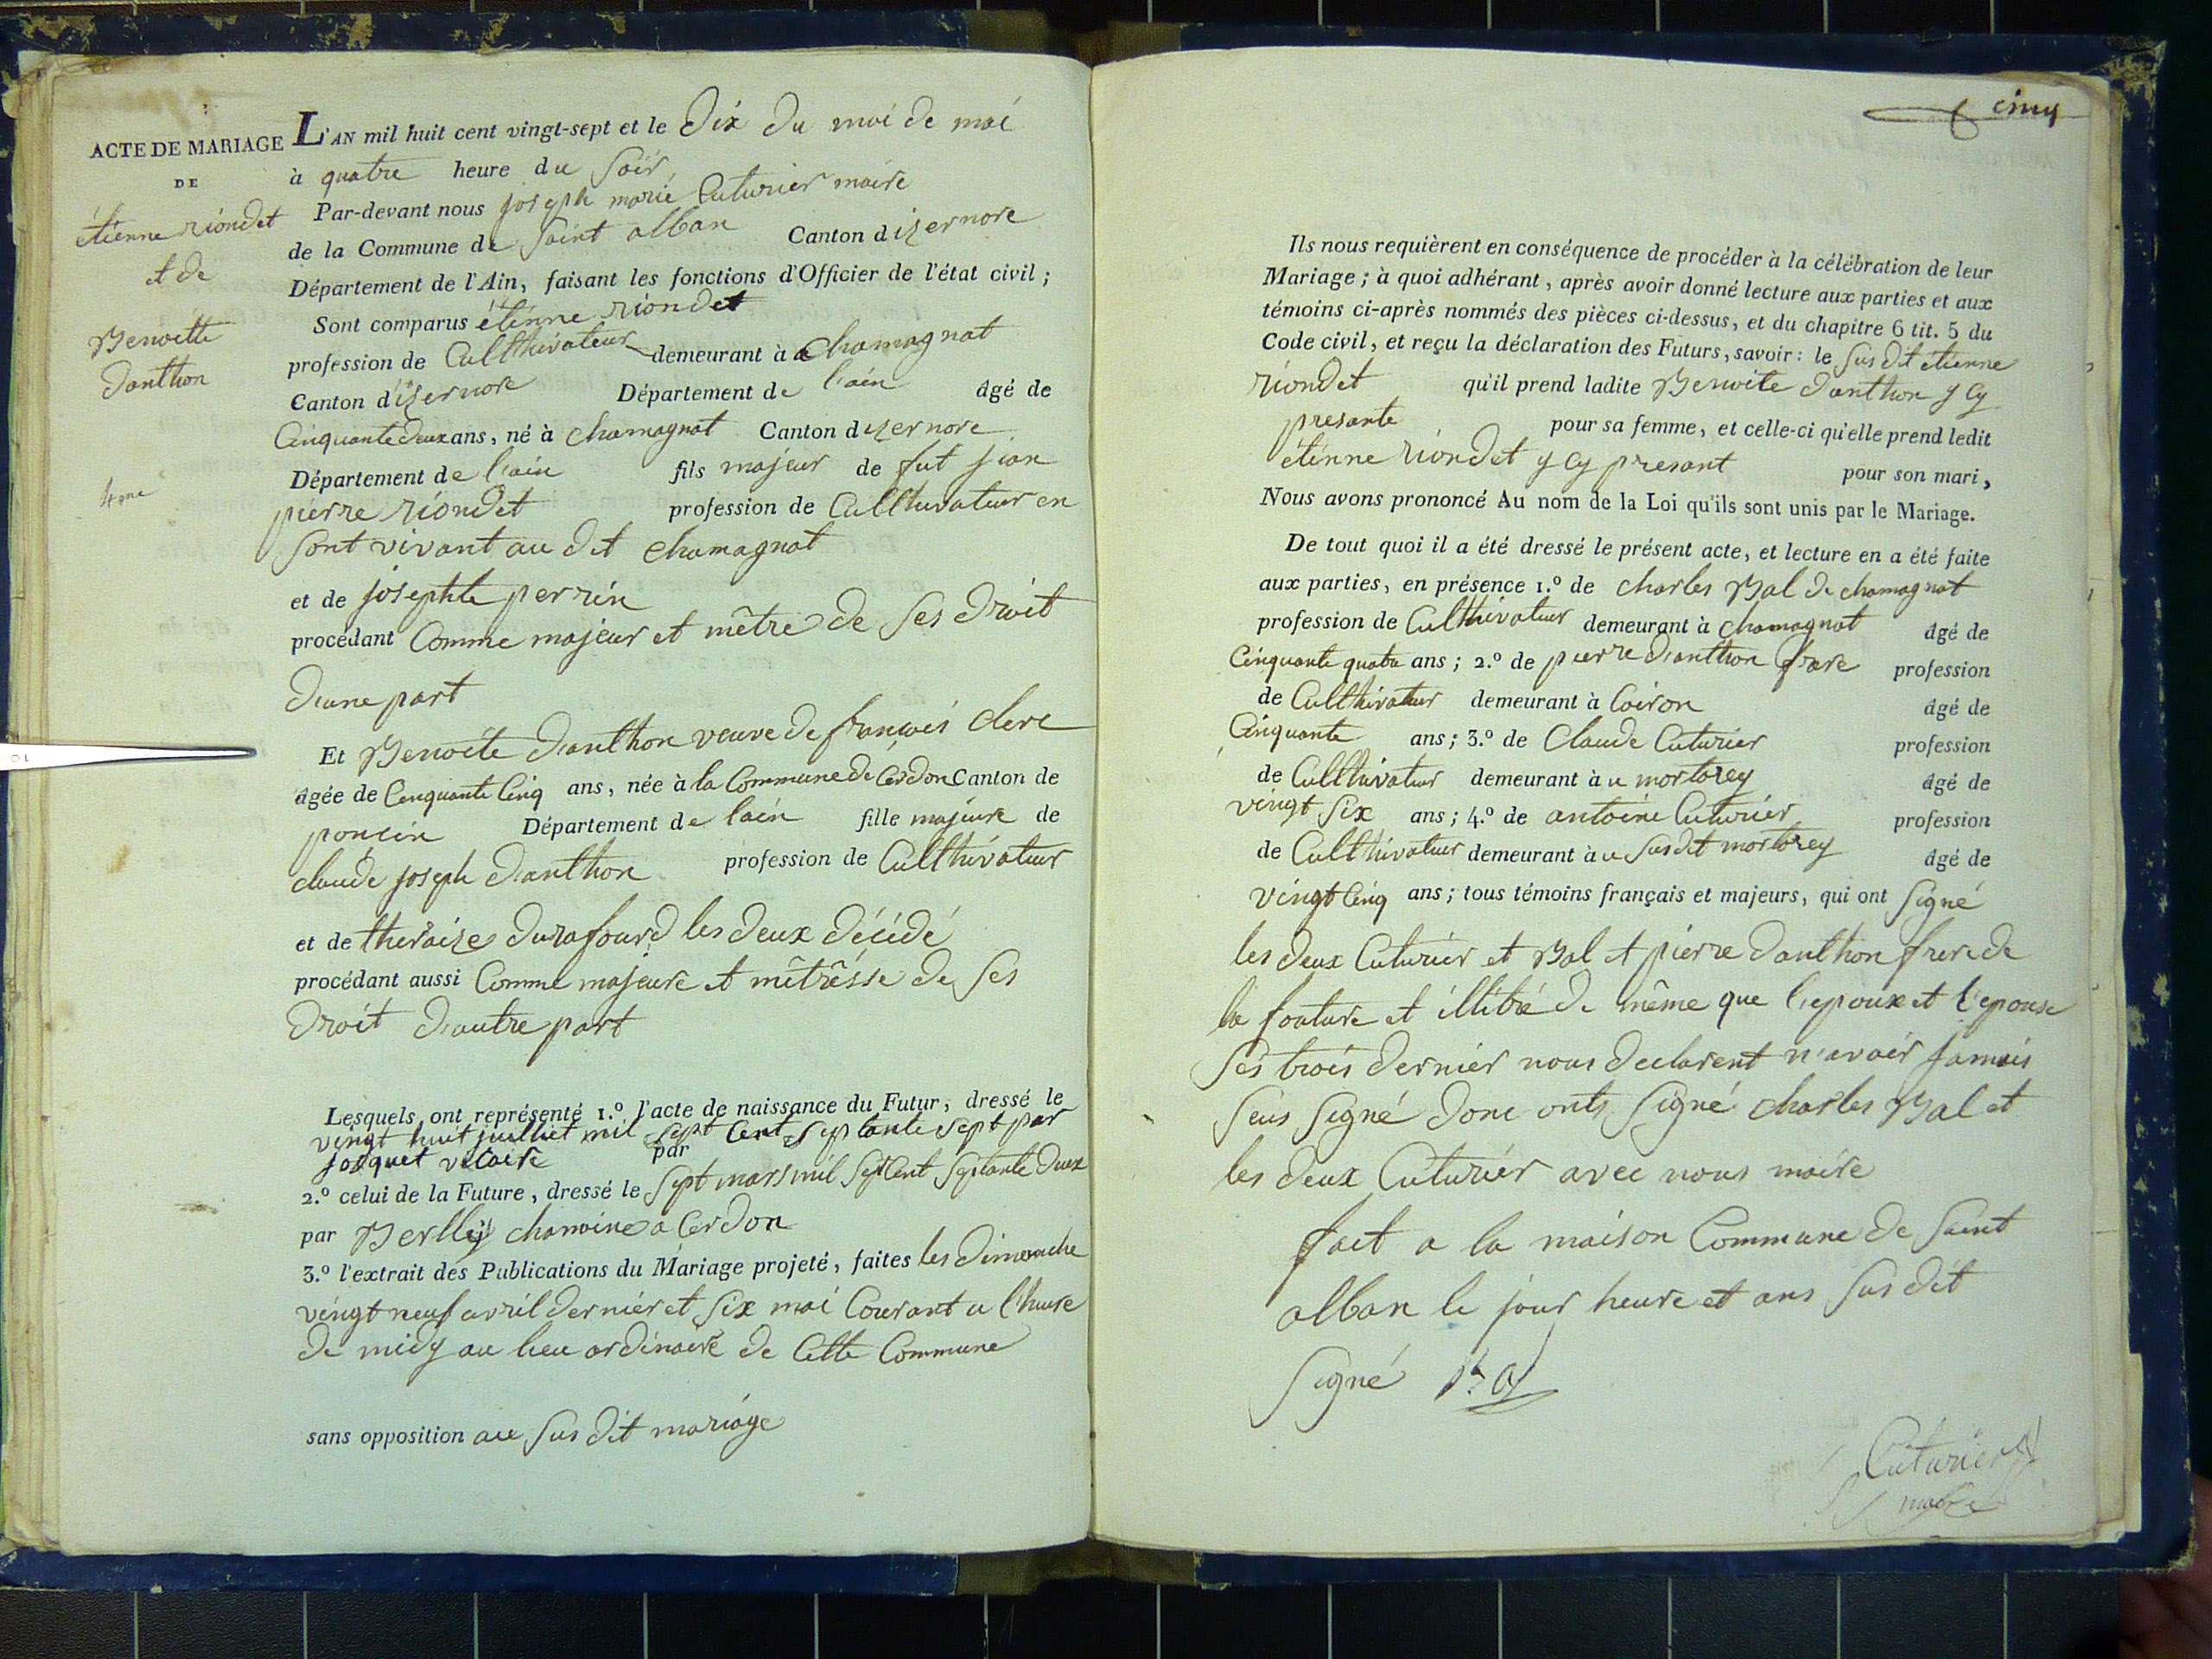 ACTE DE MARIAGE
DE
étienne riondet
et de
Benoitte
danthon
4eme
L'AN mil huit cent vingt-sept et le dix du moi de mai
à quatre heure du soir
Par-devant nous joseph marie Cuturier maire
de la Commune de saint alban Canton dizernore
Département de l'Ain, faisant les fonctions d'Officier de l'état civil ;
Sont comparus étienne riondet
profession de Cullthivateur demeurant à chamagnat
Canton d'izernore Département de l'ain âgé de
Cinquante deux ans, né à chamagnat Canton dizernore
Département de l'ain fils majeur de fut jean
pierre riondet profession de Cullthivateur en
sont vivant au dit chamagnat
et de josephte perrin
procédant Comme majeur et mêtre de ses droit
d'une part
Et Benoite danthon veuve de francois clerc
âgée de Cenquante Cinq ans, née à la Commune de Cerdon Canton de
poncin Département de lain fille majeure de
claude joseph danthon profession de Cullthivateur
et de theraize durafourd les deux décédé
procédant aussi Comme majeure et mêtrêsse de ses
droit d'autre part
Lesquels ont représenté 1.º l'acte de naissance du Futur, dressé le
vingt huit juilliet mil sept Cent septante sept par
josquet vicaire par
2.º celui de la Future, dressé le sept mars mil sept Cent septante deux
par Berlly chanoine a Cerdon
3.º l'extrait des Publications du Mariage projeté, faites les dimenche
vingt neuf avril dernier et six mai Courant a l'heure
de midy au lieu ordinaire de Cette Commune
sans opposition au sus dit mariage
cinq
Ils nous requièrent en conséquence de procéder à la célébration de leur
Mariage ; à quoi adhérant, après avoir donné lecture aux parties et aux
témoins ci-après nommés des pièces ci-dessus, et du chapitre 6 tit. 5 du
Code civil, et reçu la déclaration des Futurs, savoir : le sus dit étienne
riondet qu'il prend ladite Benoite danthon y cy
presante pour sa femme, et celle-ci qu'elle prend ledit
étienne riondet y cy presant pour son mari,
Nous avons prononcé Au nom de la Loi qu'ils sont unis par le Mariage.
De tout quoi il a été dressé le présent acte, et lecture en a été faite
aux parties, en présence 1.º de charles Bal de chamagnat
profession de Cullthivateur demeurant à chamagnat âgé de
Cinquante quatre ans ; 2.º de pierre danthon frere profession
de Cullthivateur demeurant à Coiron âgé de
Cinquante ans ; 3.º de Claude Cuturier profession
de Cullthivateur demeurant à u mortarey âgé de
vingt six ans ; 4.º de antoine Cuturier profession
de Cullthivateur demeurant à u susdit mortarey âgé de
vingt Cinq ans ; tous témoins français et majeurs, qui ont signé
les deux Cuturier et Bal et pierre danthon frere de
la fouture et illitré de même que l'epoux et l'epouse
ses trois dernier nous declarent n'avoir jamais
seus signé donc onts signé charles Bal et
les deux Cuturier avec nous maire
fait a la maison Commune de saint
alban le jour heure et ans sus dit
signé
Cuturier
maire